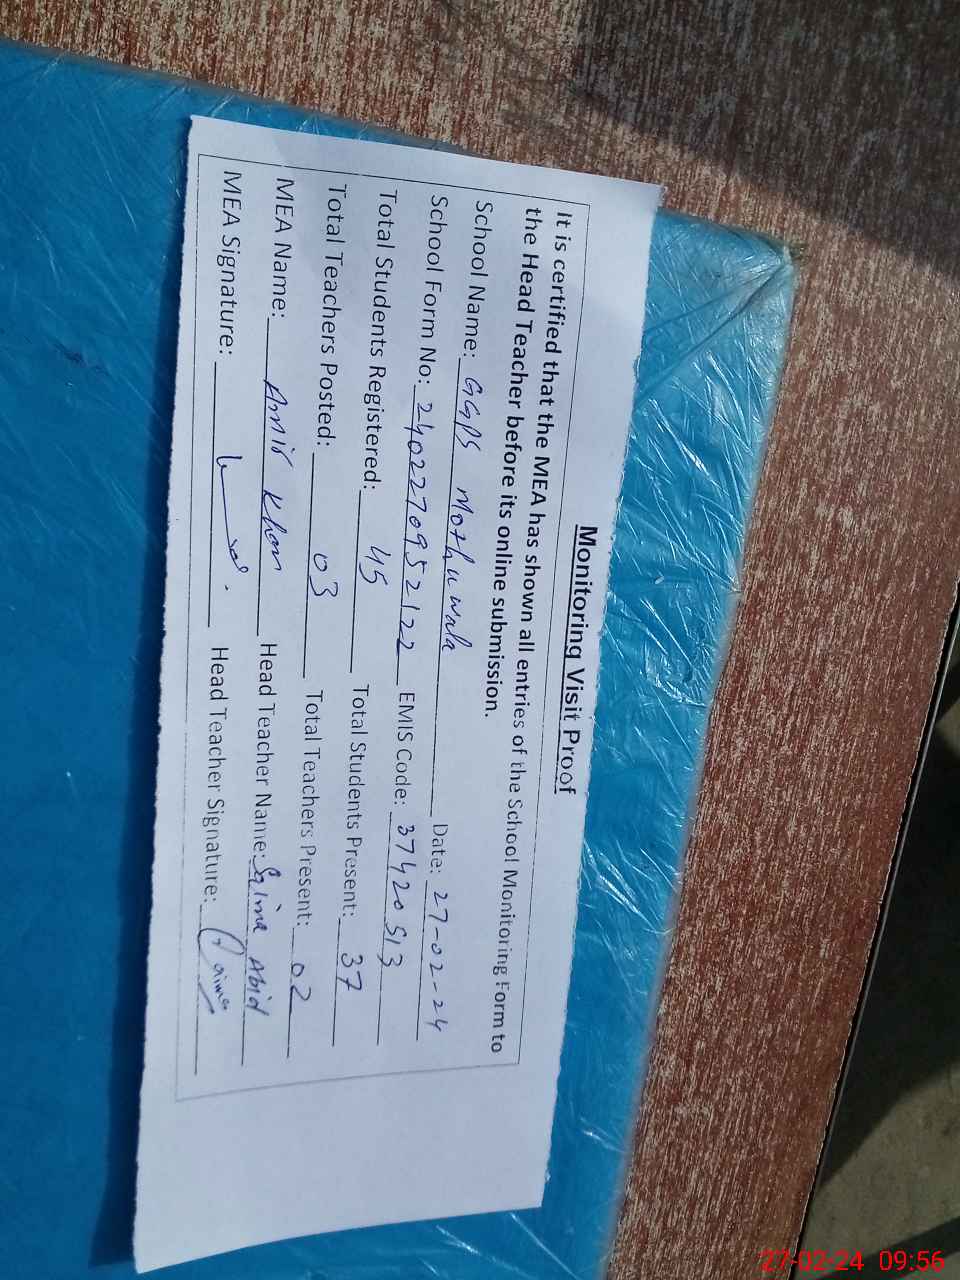 Monitoring Visit Proof
It is certified that the MEA has shown all entries of the School Monitoring Form to
the Head Teacher before its online submission.
School Name: GGPS Mothuwala Date: 27-02-24
School Form No: 2402270952122 EMIS Code: 37420513
Total Students Registered: 45 Total Students Present: 37
Total Teachers Posted: 03 Total Teachers Present: 02
MEA Name: Amir Khan Head Teacher Name: Sqima Abid
MEA Signature: Head Teacher Signature:
27-02-24 09:56